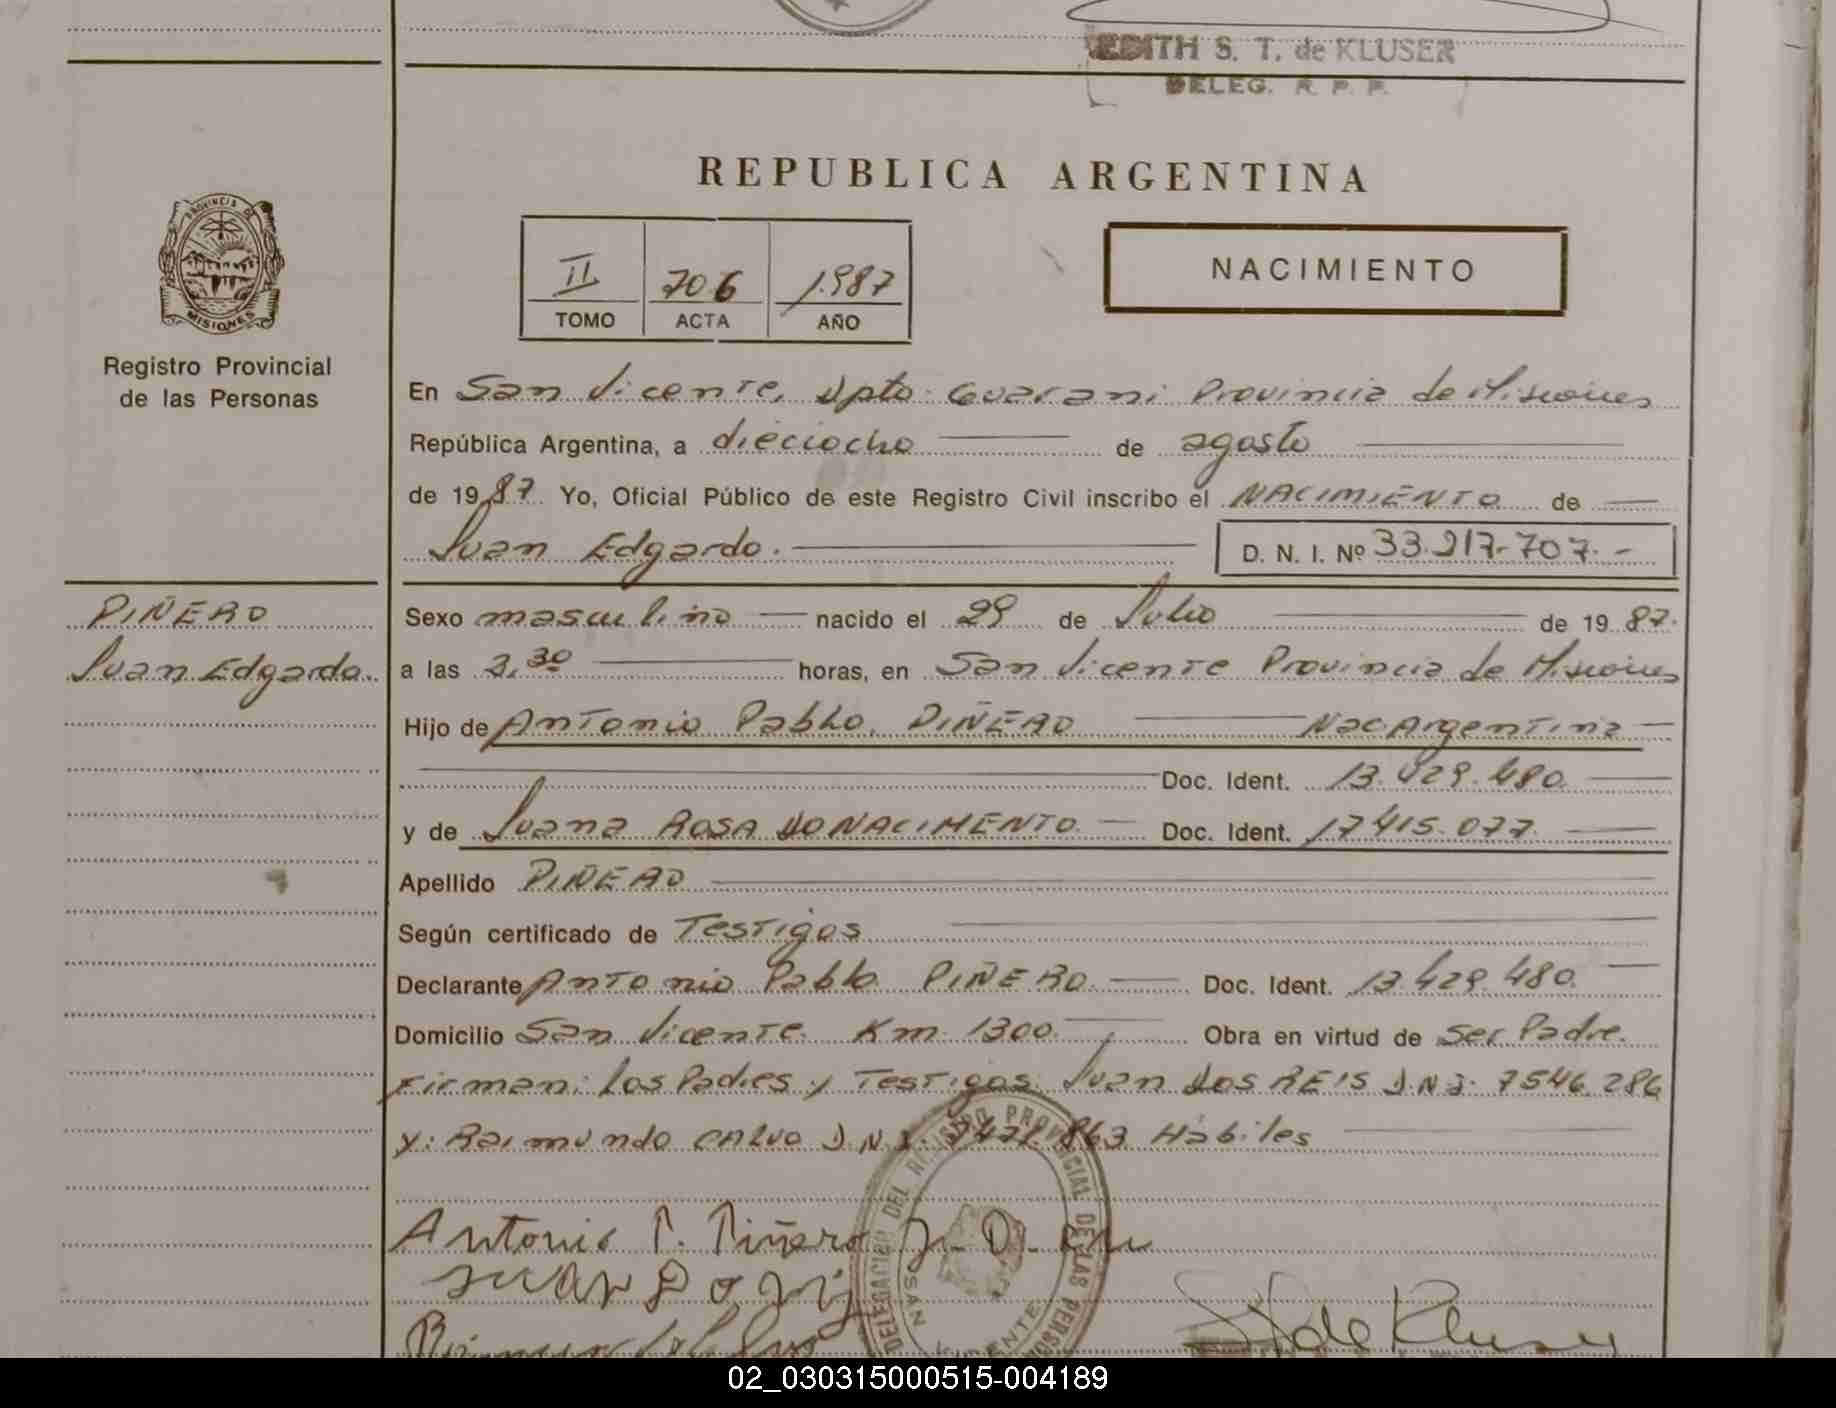 EDITH S. T. de KLUSER
DELEG. R. P. P.
REPUBLICA ARGENTINA
PROVINCIA DE
MISIONES
Registro Provincial
de las Personas
II 706 1.987
TOMO ACTA AÑO
NACIMIENTO
En San Vicente, Dpto. Guarani Provincia de Misiones
República Argentina, a dieciocho de agosto
de 1987. Yo, Oficial Público de este Registro Civil inscribo el NACIMIENTO de
Juan Edgardo. D. N. I. Nº 33.217.707.-
PIÑERO
Juan Edgardo.
Sexo masculino nacido el 29 de Julio de 1987.
a las 3,30 horas, en San Vicente Provincia de Misiones
Hijo de Antonio Pablo, PIÑERO Nac Argentina
Doc. Ident. 13.429.480.
y de Juana ROSA DO NACIMENTO. Doc. Ident. 17415.077.
Apellido PIÑERO
Según certificado de Testigos
Declarante Antonio Pablo PIÑERO. Doc. Ident. 13.429.480.
Domicilio San Vicente. Km. 1300. Obra en virtud de Ser Padre.
Firman: Los Padres y Testigos: Juan DOS REIS D.N.I. 7546.286
y: Raimundo CALVO D.N.I. 863 Habiles
Antonio P. Piñero
DELEGACION DEL REGISTRO PROVINCIAL DE LAS PERSONAS
SAN VICENTE
de Kluser
02_030315000515-004189